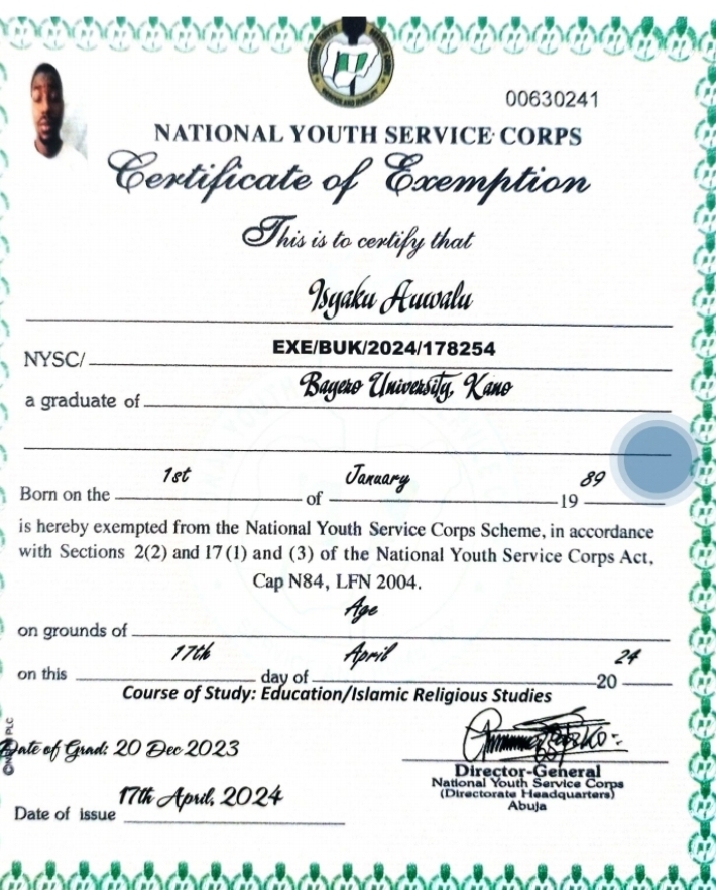 00630241
NATIONAL YOUTH SERVICE CORPS
Certificate of Exemption
This is to certify that
Isyaku Auwalu
NYSC/ EXE/BUK/2024/178254
a graduate of Bayero University, Kano
Born on the 1st of January 19 89
is hereby exempted from the National Youth Service Corps Scheme, in accordance
with Sections 2(2) and 17(1) and (3) of the National Youth Service Corps Act,
Cap N84, LFN 2004.
on grounds of Age
on this 17th day of April 20 24
Course of Study: Education/Islamic Religious Studies
Date of Grad: 20 Dec 2023
Director-General
National Youth Service Corps
(Directorate Headquarters)
Abuja
Date of issue 17th April, 2024